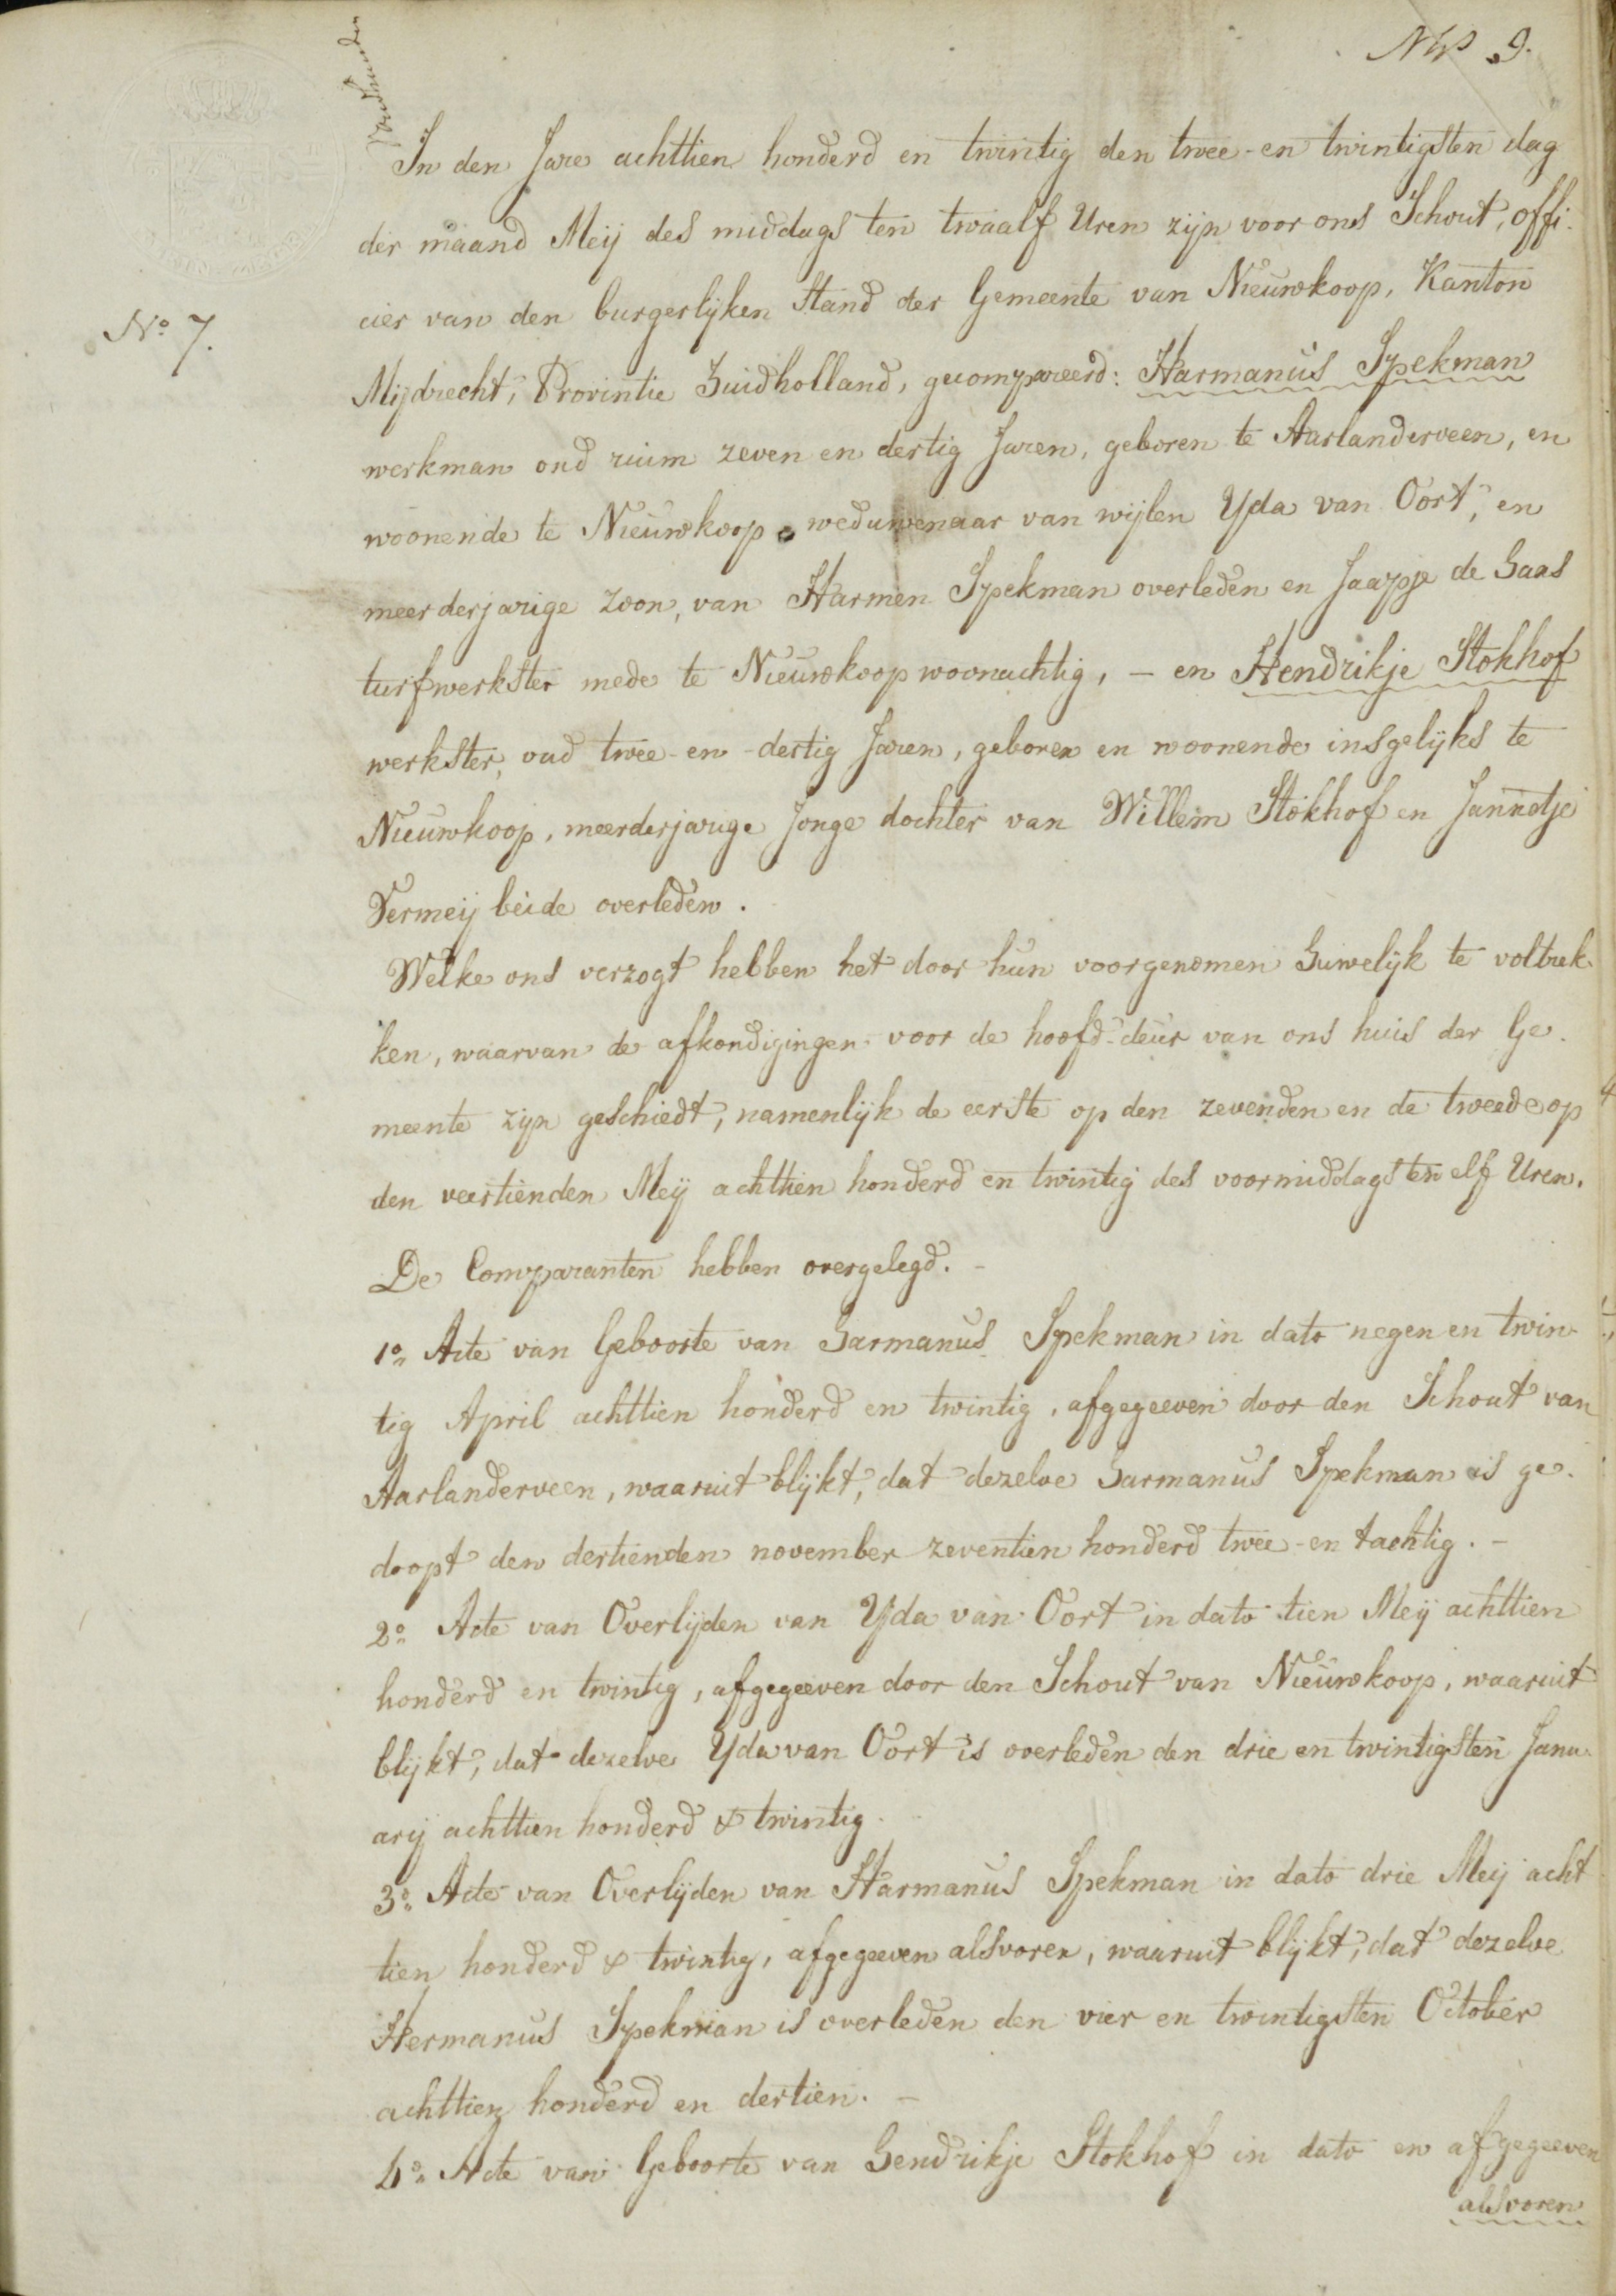 9.
No 7.
In den Jare achttien honderd en twintig den twee-en twintigsten dag
der maand Meij des middags ten twaalf Uren zijn voor ons Schout, offi-
cier van den burgerlijken Stand der Gemeente van Nieuwkoop, Kanton
Mijdrecht, Provintie Zuidholland, gecompareerd: Harmanus Spekman
werkman oud ruim zeven en dertig Jaren, geboren te Aarlanderveen, en
woonende te Nieuwkoop, weduwenaar van wijlen Yda van Oort, en
meerderjarige Zoon, van Harmen Spekman overleden en Jaapje de Haas
turfwerkster mede te Nieuwkoop woonachtig, - en Hendrikje Stokhof
werkster, oud twee-en-dertig Jaren, geboren en woonende insgelijks te
Nieuwkoop, meerderjarige Jonge dochter van Willem Stokhof en Jannetje
Vermeij beide overleden.
Welke ons verzogt hebben het door hun voorgenomen Huwelijk te voltrek-
ken, waarvan de afkondigingen voor de hoofd-deur van ons huis der Ge-
meente zijn geschiedt, namenlijk de eerste op den zevenden en de tweede op
den veertienden Meij achttien honderd en twintig des voormiddags ten elf Uren.
De Comparanten hebben overgelegd. -
1o Acte van Geboorte van Harmanus Spekman in dato negen en twin-
tig April achttien honderd en twintig, afgegeeven door den Schout van
Aarlanderveen, waaruit blijkt, dat dezelve Harmanus Spekman is ge-
doopt den dertienden november zeventien honderd twee-en tachtig. -
2o Acte van Overlijden van Yda van Oort in dato tien Meij achttien
honderd en twintig, afgegeeven door den Schout van Nieuwkoop, waaruit
blijkt, dat dezelve Yda van Oort is overleden den drie en twintigsten Janu-
arij achttien honderd & twintig.
3o Acte van Overlijden van Harmanus Spekman in dato drie Meij acht
tien honderd & twintig, afgegeeven alsvoren, waaruit blijkt, dat dezelve
Hermanus Spekman is overleden den vier en twintigsten October
achttien honderd en dertien. -
4o Acte van Geboorte van Hendrikje Stokhof in dato en afgegeeven
alsvoren